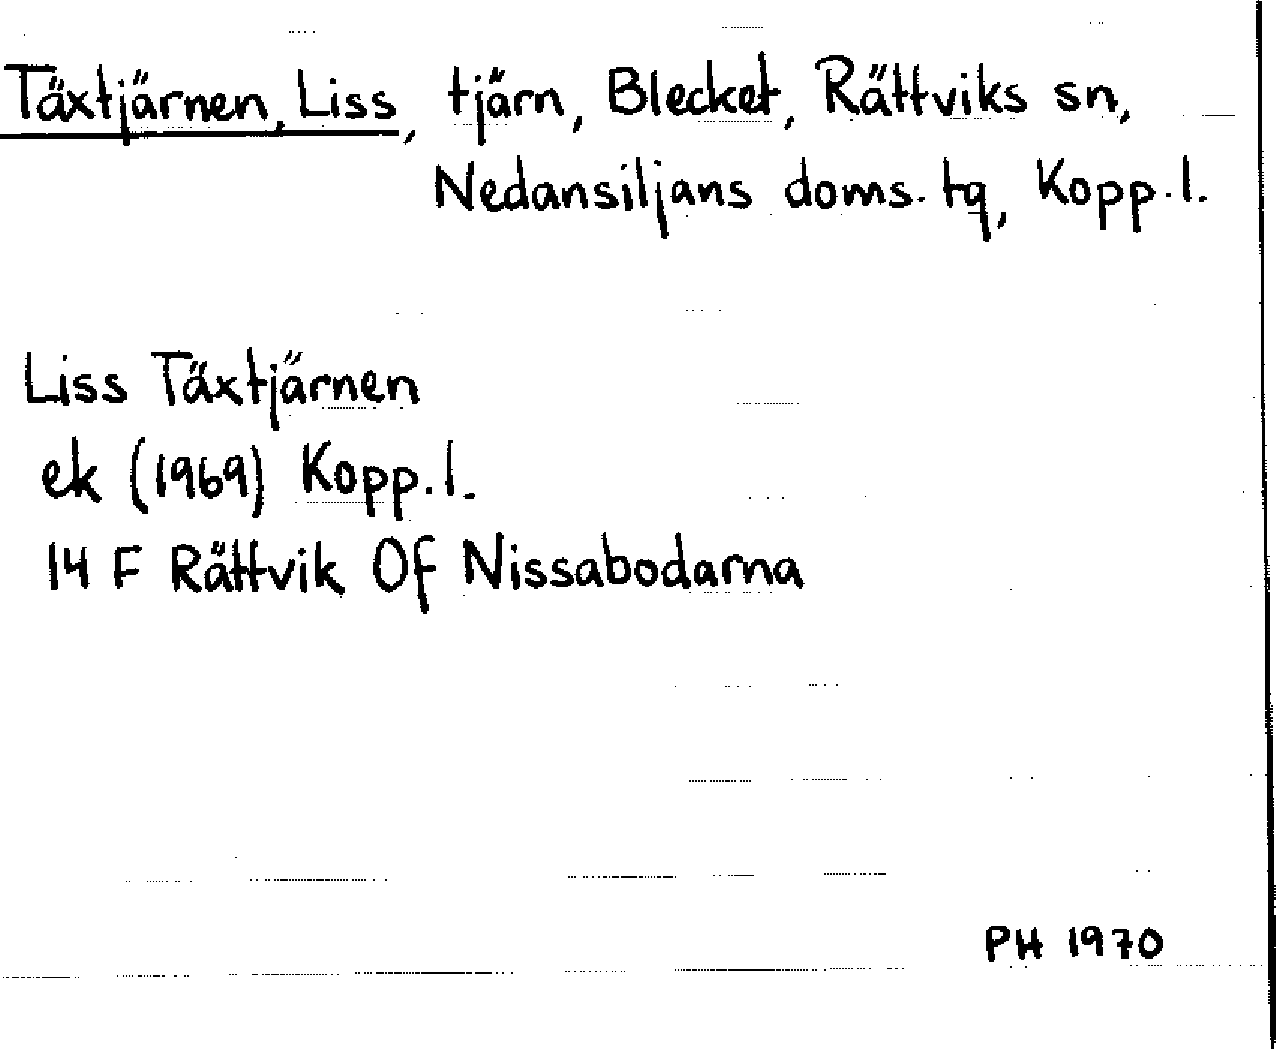 Täxtjärnen, Liss, tjärn, Blecket, Rättviks sn,
Nedansiljans doms. tg, Kopp. l.
Liss Täxtjärnen
ek (1969) Kopp. l.
14 F Rättvik Of Nissabodarna
PH 1970